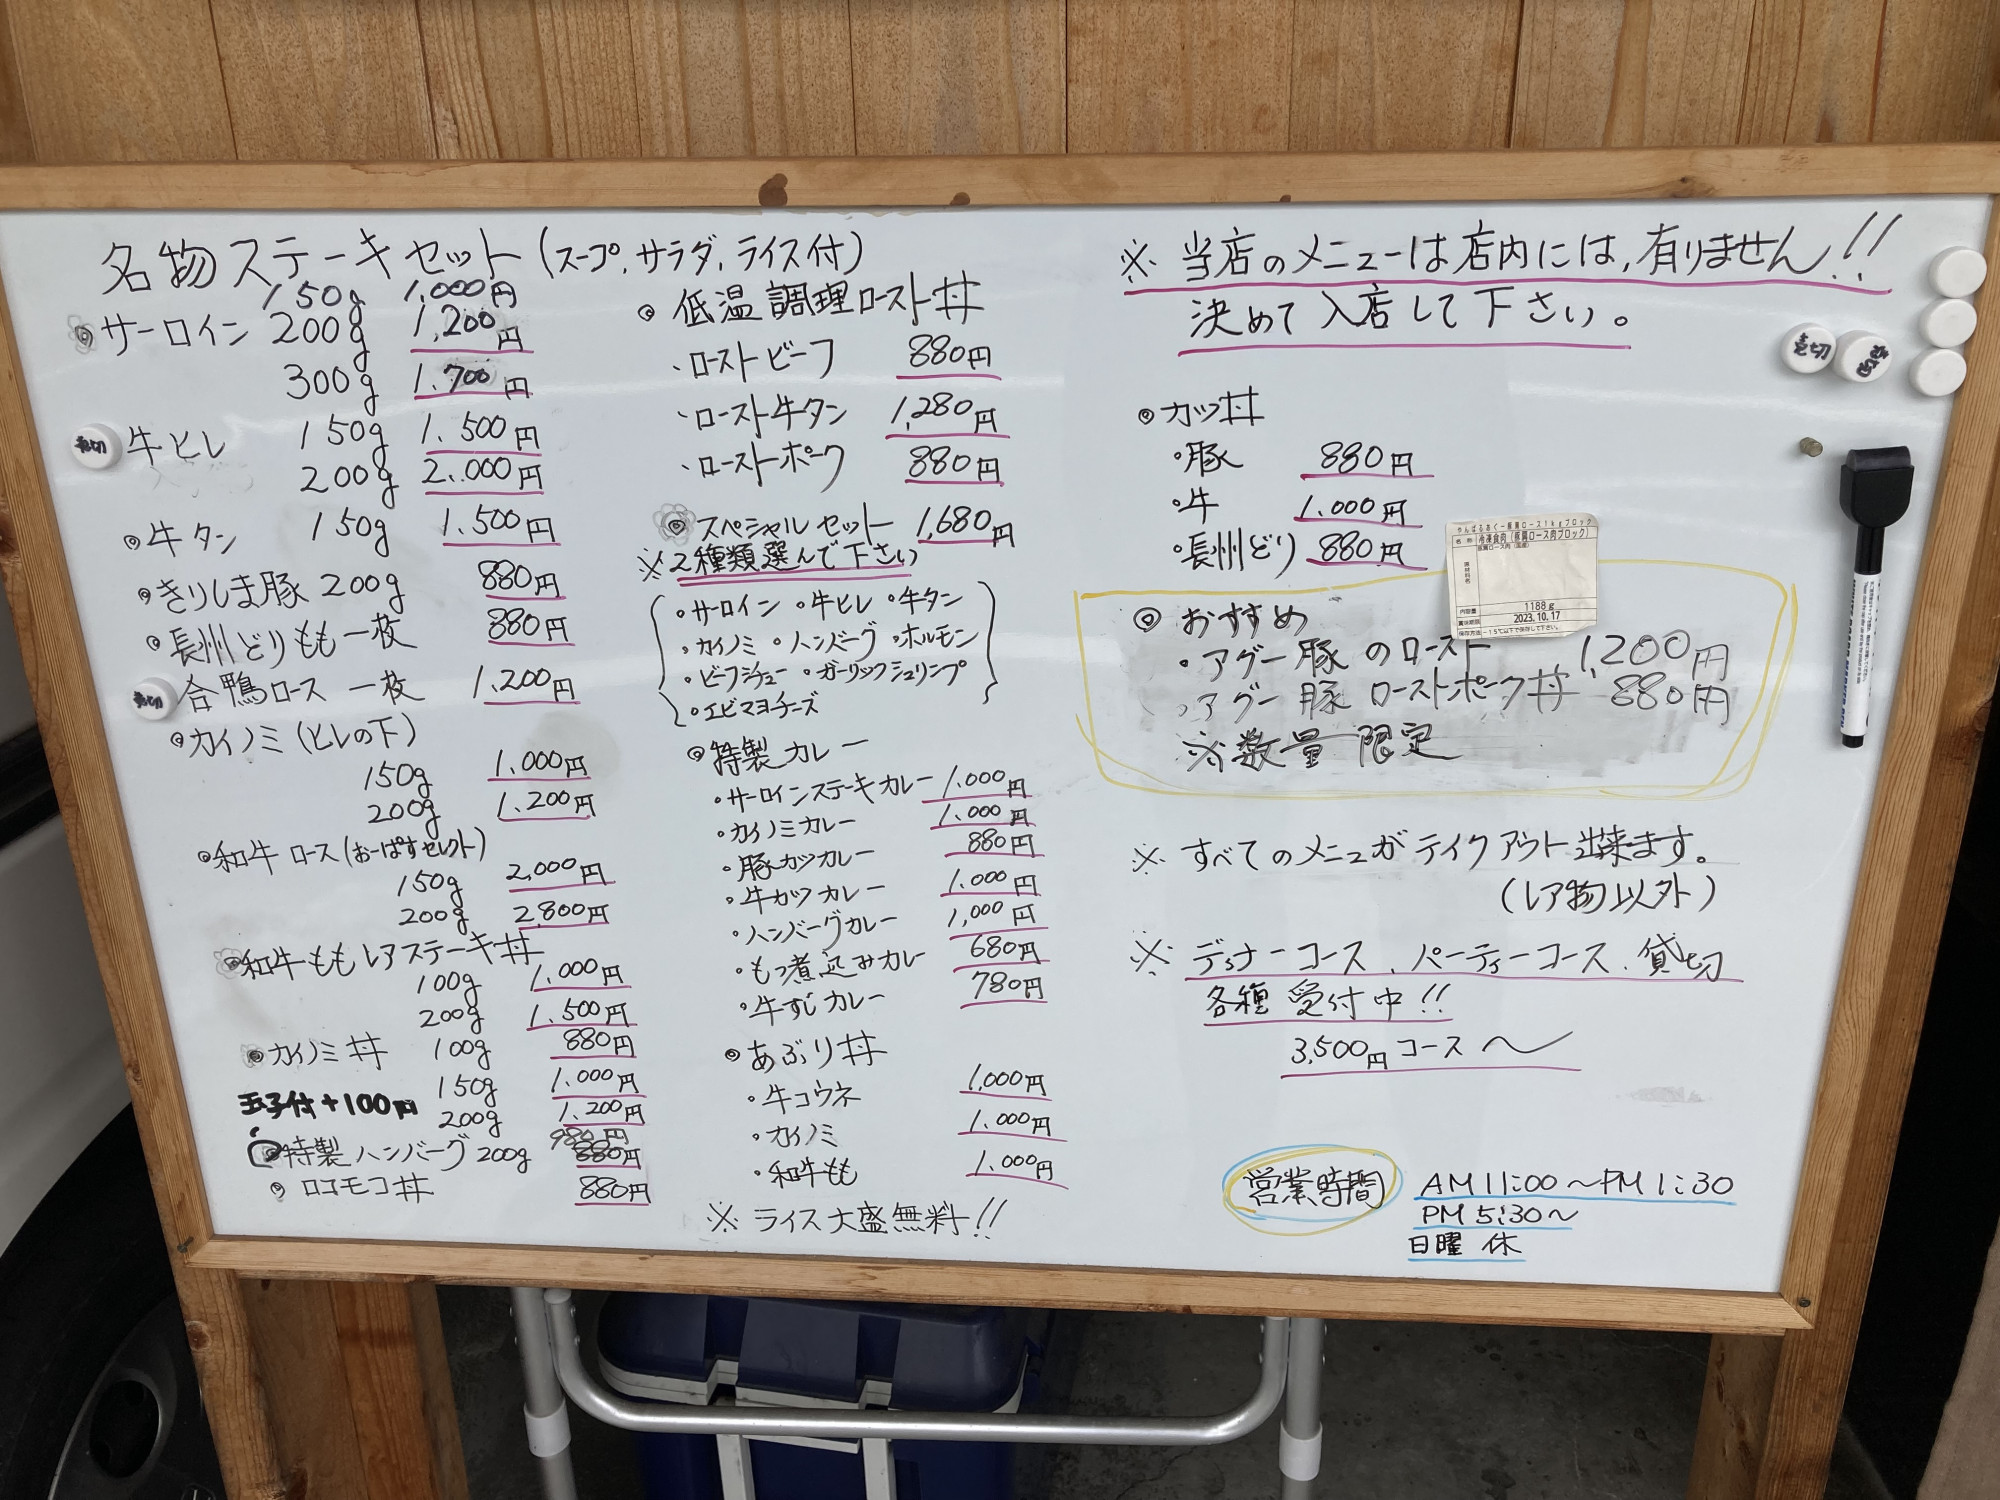 名物ステーキセット(スープ,サラダ,ライス付)
150g 1,000円
◎サーロイン 200g 1,200円
300g 1,700円
売切 牛ヒレ 150g 1,500円
200g 2,000円
◎牛タン 150g 1,500円
◎きりしま豚 200g 880円
◎長州どりもも一枚 880円
売切 合鴨ロース 一枚 1,200円
◎カイノミ(ヒレの下)
150g 1,000円
200g 1,200円
◎和牛ロース(おーぱすセレクト)
150g 2,000円
200g 2,800円
◎和牛ももレアステーキ丼
100g 1,000円
200g 1,500円
◎カイノミ丼 100g 880円
150g 1,000円
玉子付+100円
200g 1,200円
980円
◎特製ハンバーグ 200g 880円
◎ロコモコ丼 880円
◎低温調理ロースト丼
・ローストビーフ 880円
・ロースト牛タン 1,280円
・ローストポーク 880円
◎スペシャルセット 1,680円
※2種類選んで下さい
・サーロイン ・牛ヒレ ・牛タン
・カイノミ ・ハンバーグ ・ホルモン
・ビーフシチュー ・ガーリックシュリンプ
・エビマヨチーズ
◎特製カレー
・サーロインステーキカレー 1,000円
・カイノミカレー 1,000円
・豚カツカレー 880円
・牛カツカレー 1,000円
・ハンバーグカレー 1,000円
・もつ煮込みカレー 680円
・牛すじカレー 780円
◎あぶり丼
・牛コウネ 1,000円
・カイノミ 1,000円
・和牛もも 1,000円
※ ライス大盛無料!!
※ 当店のメニューは店内には,有りません!!
決めて入店して下さい。
売切 売切
◎カツ丼
・豚 880円
・牛 1,000円
・長州どり 880円
やんばるあぐー豚肩ロース1kgブロック
名称 冷凍食肉(豚肩ロース肉ブロック)
豚肩ロース肉(国産)
原材料名
内容量 1188g
賞味期限 2023.10.17
保存方法 -15℃以下で保存して下さい。
◎おすすめ
・アグー豚のロースト 1,200円
・アグー豚ローストポーク丼 880円
※数量限定
※ すべてのメニュがテイクアウト出来ます。
(レア物以外)
※ ディナーコース、パーティーコース、貸切
各種受付中!!
3,500円コース〜
営業時間 AM11:00〜PM1:30
PM5:30〜
日曜 休